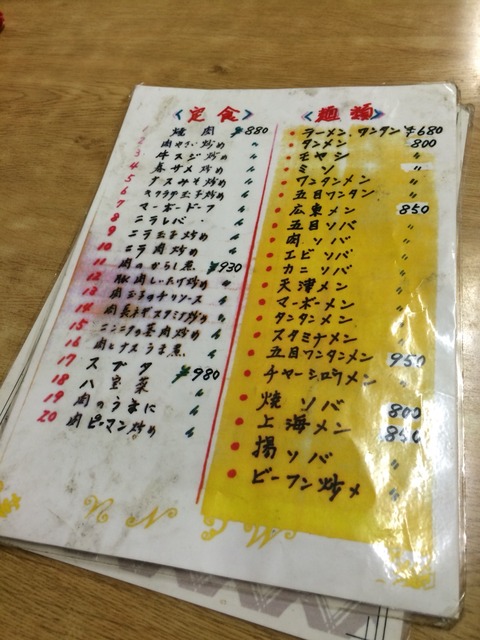 〈定食〉
1 焼肉 ¥880
2 肉やさい炒め 〃
3 牛スジ炒め 〃
4 春サメ炒め 〃
5 ナスみそ炒め 〃
6 キクラゲ玉子炒め 〃
7 マーボードーフ 〃
8 ニラレバー 〃
9 ニラ玉子炒め 〃
10 ニラ肉炒め 〃
11 肉のからし煮 ¥930
12 豚肉しいたけ炒め 〃
13 肉玉子のチリソース 〃
14 肉長ネギスタミナ炒め 〃
15 ニンニクの茎肉炒め 〃
16 肉とナスうま煮 〃
17 スブタ ¥980
18 八宝菜 〃
19 肉のうまに 〃
20 肉ピーマン炒め 〃
〈麺類〉
ラーメン、ワンタン ¥680
タンメン 800
モヤシ 〃
ミソ 〃
ワンタンメン 〃
五目ワンタン 〃
広東メン 850
五目ソバ 〃
肉ソバ 〃
エビソバ 〃
カニソバ 〃
天津メン 〃
マーボーメン 〃
タンタンメン 〃
スタミナメン 〃
五目ワンタンメン 950
チャーシュウメン 〃
焼ソバ 800
上海メン 850
揚ソバ 〃
ビーフン炒メ 〃